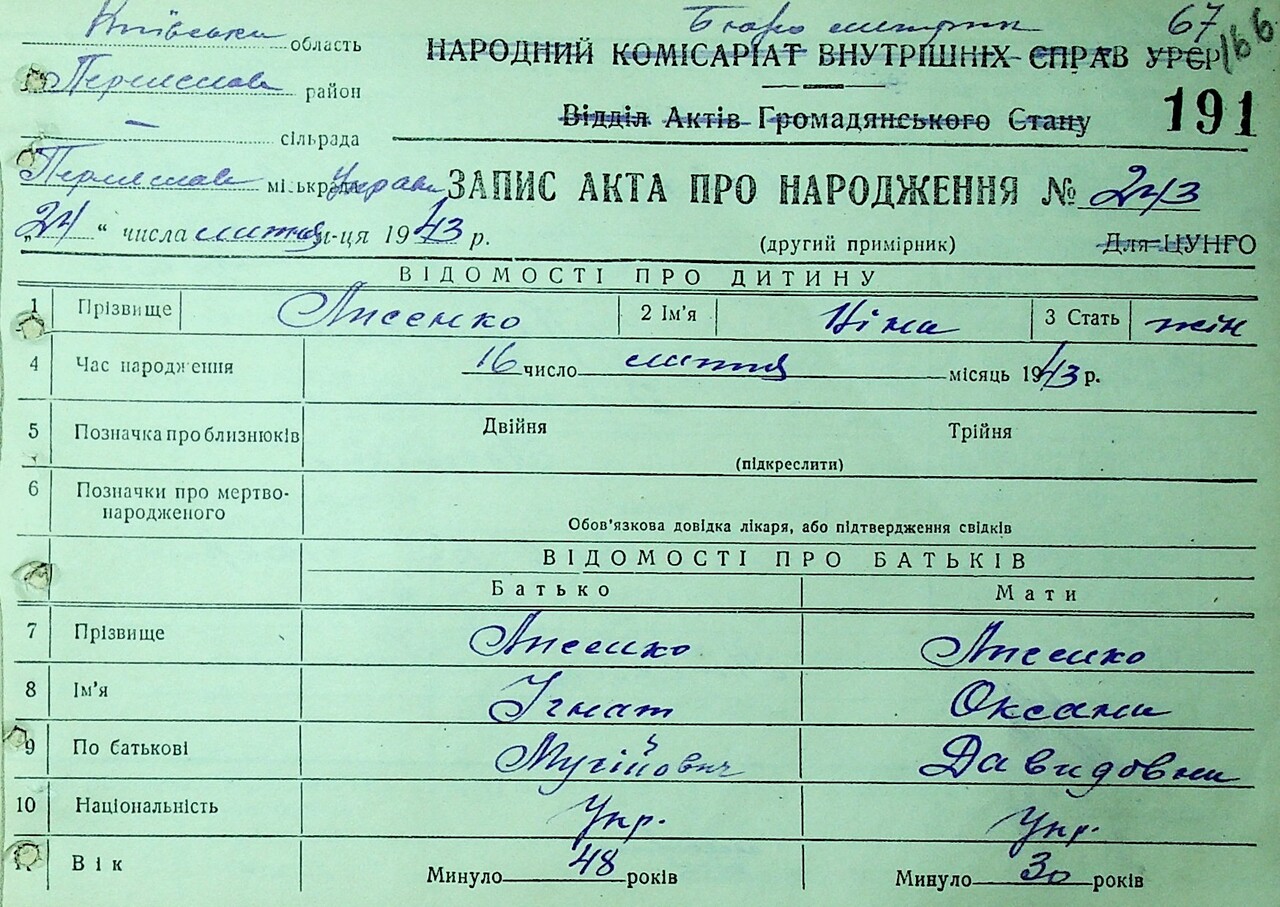 Київська область
Бюро метрик 67
166
НАРОДНИЙ КОМІСАРІАТ ВНУТРІШНІХ СПРАВ УРСР
Переяслав район
Відділ Актів Громадянського Стану 191
— сільрада
Переяслав міськрада Управа ЗАПИС АКТА ПРО НАРОДЖЕННЯ № 243
„24“ числа лютня м-ця 1943 р. (другий примірник) Для ЦУНГО
ВІДОМОСТІ ПРО ДИТИНУ
1 Прізвище Лисенко 2 Ім'я Ніна 3 Стать жін
4 Час народження 16 число лютня місяць 1943 р.
5 Позначка про близнюків Двійня Трійня
(підкреслити)
6 Позначки про мертво-
народженого
Обов'язкова довідка лікаря, або підтвердження свідків
ВІДОМОСТІ ПРО БАТЬКІВ
Батько Мати
7 Прізвище Лисенко Лисенко
8 Ім'я Ігнат Оксана
9 По батькові Давидовна
10 Національність Укр. Укр.
Вік Минуло 48 років Минуло 30 років